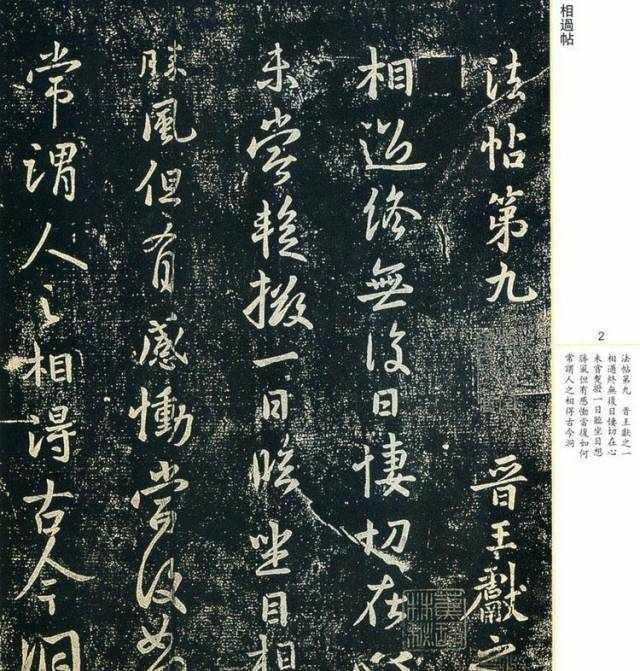 相過帖
法帖第九 晉王獻之
相過終無復日悽切在心
未嘗蹔撥一日臨坐目想
勝風但有感慟當復如
常謂人之相得古今洞
2
法帖第九 晉王獻之一
相過終無復日悽切在心
未嘗蹔撥一日臨坐目想
勝風但有感慟當復如何
常謂人之相得古今洞